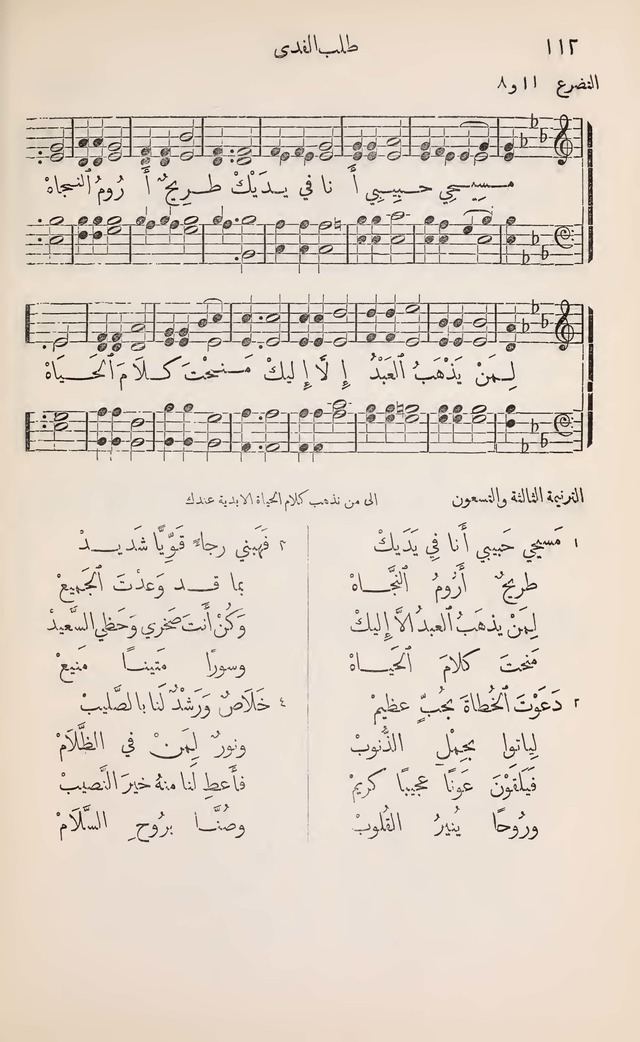 ١١٢
طلب الفدى
التضرع ١١ و ٨
مسيحي حبيبي أنا في يديكْ طريحٌ أَرُومُ ٱلنجاهْ
لِمَنْ يَذْهَبُ ٱلعَبْدُ إِلَّا إِليكْ مَنحْتَ كلَامَ ٱلحَيَاهْ
الترنيمة الثالثة والتسعون
الى من نذهب كلام الحياة الابدية عندك
١ مَسيحي حَبيبي أَنا فِي يَدَيكْ
طريحٌ أَرُومُ النَّجَاهْ
لِمَنْ يذهَبُ ٱلعبدُ الاَّ إِليكْ
مَنحتَ كلامَ الحَياهْ
٢ دَعَوْتَ ٱلخُطاةَ بحُبٍّ عظيمْ
لِياتوا بحِملِ الذُّنوبْ
فَيَلقَوْنَ عَونًا عجيبًا كريمْ
ورُوحًا يُنيرُ القُلوبْ
٣ فَهَبني رجاءً قَوِّيًّا شَديدْ
بما قد وَعدْتَ الجَميعْ
وَكُنْ أَنتَ صَخري وَحَظي السَّعيدْ
وسورًا متينًا مَنيعْ
٤ خَلَاصٌ وَرَشْدٌ لَنا بالصَّليبْ
ونورٌ لِمَنْ في الظَّلَامْ
فأَعطِ لنا منهُ خيرَ النَّصيبْ
وصُنَّا بروُحِ السَّلَامْ